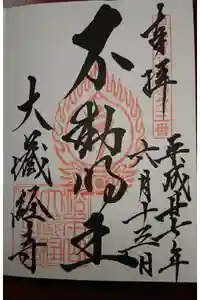 奉拝
平成廿七年
六月十三日
不動明王
大蔵経寺